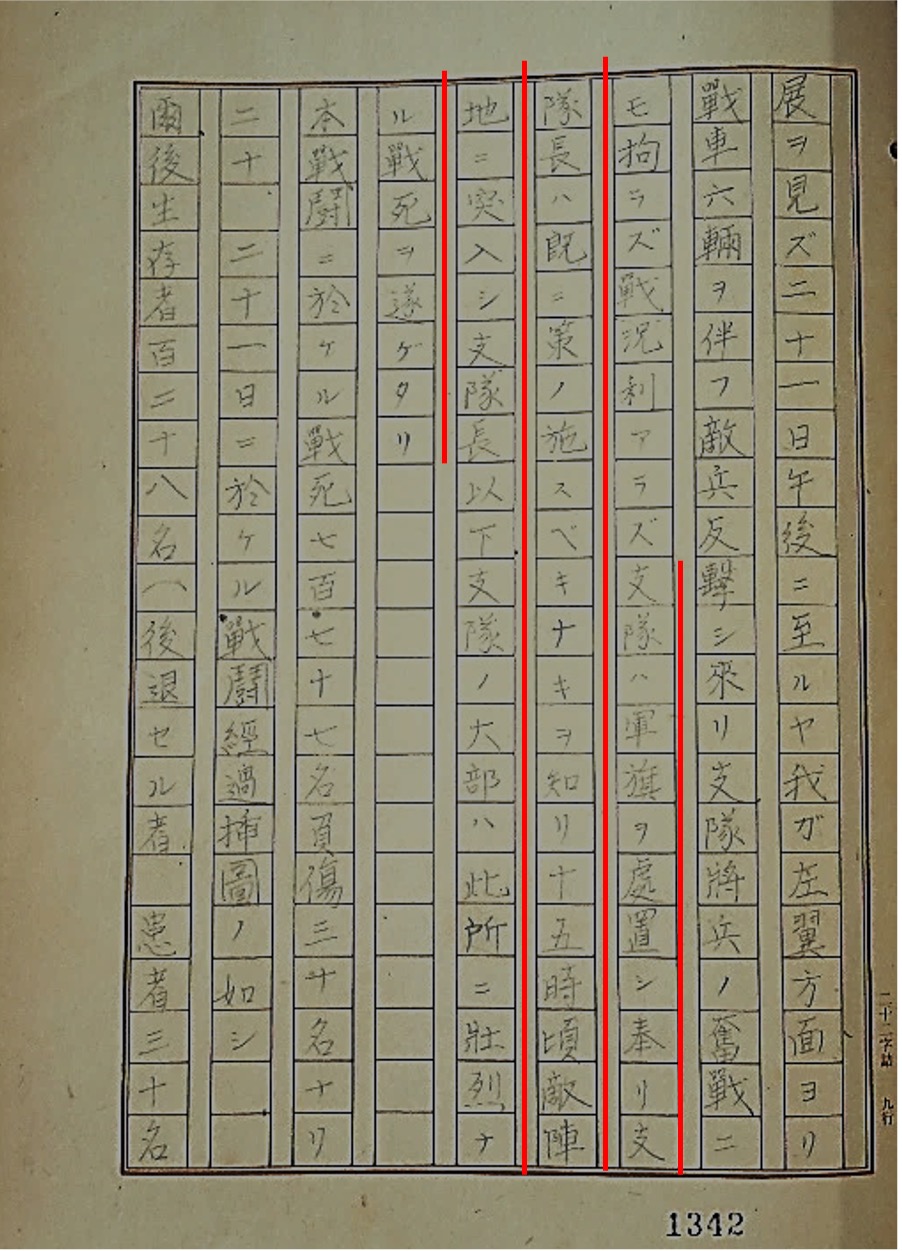 展ヲ見ズ二十一日午後ニ至ルヤ我ガ左翼方面ヨリ
戰車六輛ヲ伴フ敵兵反擊シ來リ支隊將兵ノ奮戰ニ
モ拘ラズ戰況利アラズ支隊ハ軍旗ヲ處置シ奉リ支
隊長ハ既ニ策ノ施スベキナキヲ知リ十五時頃敵陣
地ニ突入シ支隊長以下支隊ノ大部ハ此所ニ壯烈ナ
ル戰死ヲ遂ゲタリ
本戰鬪ニ於ケル戰死七百七十七名負傷三十名ナリ
二十 二十一日ニ於ケル戰鬪經過揷圖ノ如シ
爾後生存者百二十八名(後退セル者 患者三十名
二十二字詰 九行
1342